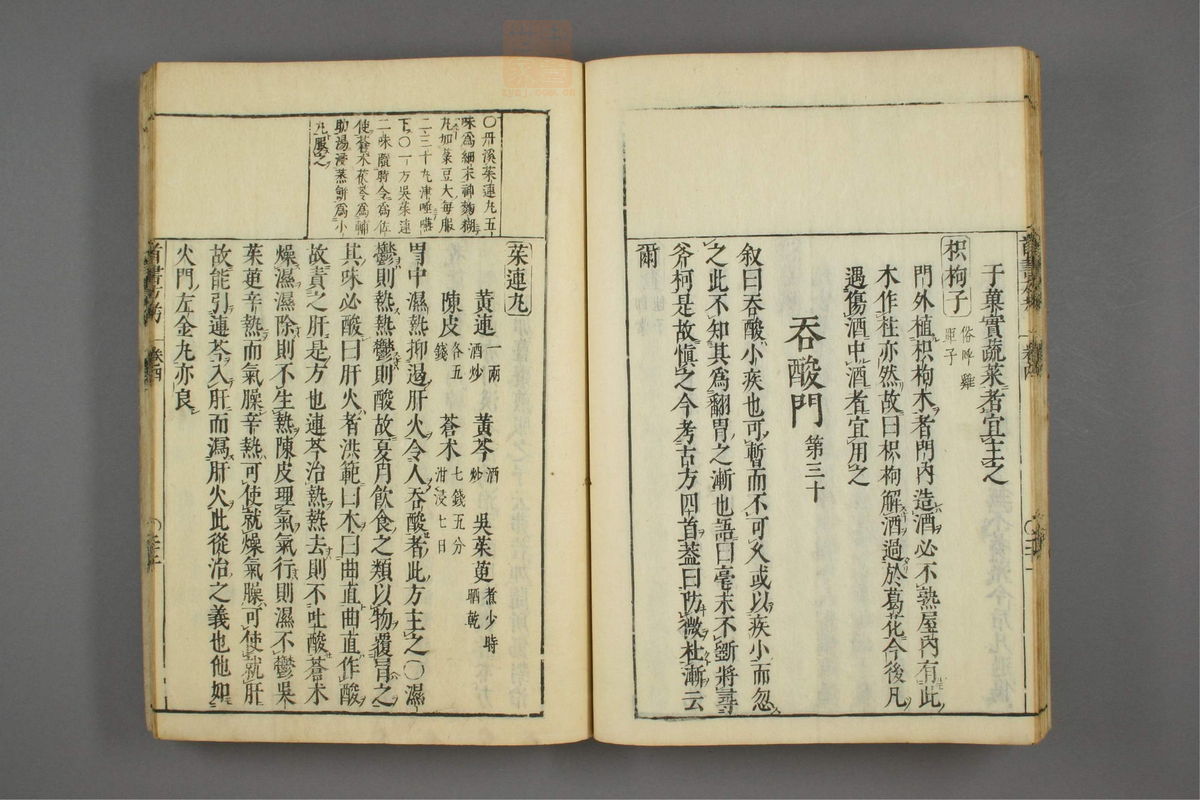 于菓實蔬菜者宜主之
枳枸子 俗呼雞
距子
門外植枳枸木者門內造酒必不熟屋內有此
木作柱亦然故曰枳枸解酒過於葛花今後凡
遇傷酒中酒者宜用之
吞酸門 第三十
叙曰吞酸小疾也可暫而不可久或以疾小而忽
之此不知其為翻胃之漸也語曰毫末不斷將尋
斧柯是故慎之今考古方四首葢曰防微杜漸云
爾
〇丹溪茱連丸五
味為細末神麴糊
丸如菉豆大每服
二三十丸津唾嚥
下〇一方吳茱連
二味隨時令為佐
使蒼朮茯苓為輔
助湯浸蒸餅為小
丸服之
茱連丸
黃連 一兩酒炒 黃芩 酒炒 吳茱萸 煮少時晒乾
陳皮 各五錢 蒼朮 七錢五分泔浸七日
胃中濕熱抑遏肝火令人吞酸者此方主之〇濕
鬱則熱熱鬱則酸故夏月飲食之類以物覆冐之
其味必酸曰肝火者洪範曰木曰曲直曲直作酸
故責之肝是方也連芩治熱熱去則不吐酸蒼朮
燥濕濕除則不生熱陳皮理氣氣行則濕不鬱吳
茱萸辛熱而氣臊辛熱可使就燥氣臊可使就肝
故能引連芩入肝而瀉肝火此從治之義也他如
火門左金丸亦良